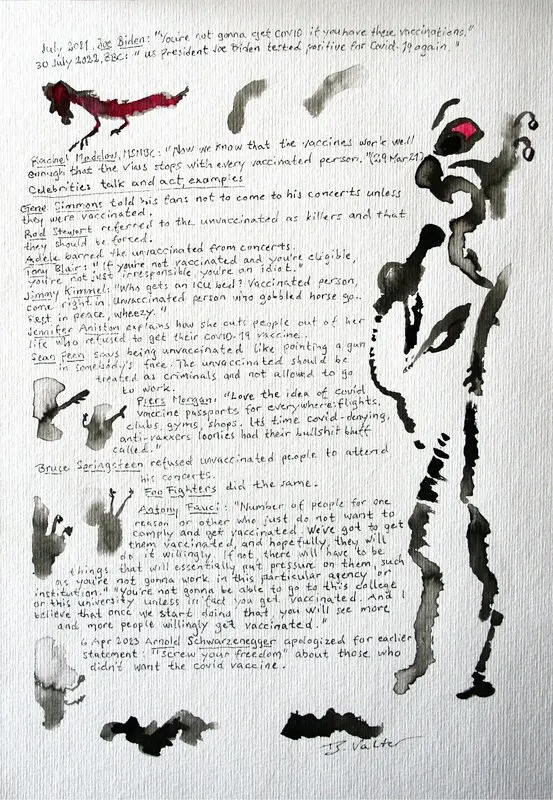 July 2021, Joe Biden: "You're not gonna get COVID if you have these vaccinations."
30 July 2022, BBC: "US President Joe Biden tested positive for Covid-19 again."
Rachel Maddow, MSNBC: "Now we know that the vaccines work well
enough that the virus stops with every vaccinated person." (29 Mar 21)
Celebrities talk and act, examples
Gene Simmons told his fans not to come to his concerts unless
they were vaccinated.
Rod Stewart referred to the unvaccinated as killers and that
they should be forced.
Adele barred the unvaccinated from concerts.
Tony Blair: "If you're not vaccinated and you're eligible,
you're not just irresponsible, you're an idiot."
Jimmy Kimmel: "Who gets an ICU bed? Vaccinated person,
come right in. Unvaccinated person who gobbled horse go..
Rest in peace, wheezy."
Jennifer Aniston explains how she cuts people out of her
life who refused to get their covid-19 vaccine.
Sean Penn says being unvaccinated like pointing a gun
in somebody's face. The unvaccinated should be
treated as criminals and not allowed to go
to work.
Piers Morgan: "Love the idea of covid
vaccine passports for everywhere: flights,
clubs, gyms, shops. Its time covid-denying,
anti-vaxxers loonies had their bullshit bluff
called."
Bruce Springsteen refused unvaccinated people to attend
his concerts.
Foo Fighters did the same.
Antony Fauci: "Number of people for one
reason or other who just do not want to
comply and get vaccinated. We've got to get
them vaccinated, and hopefully, they will
do it willingly. If not there will have to be
things that will essentially put pressure on them, such
as you're not gonna work in this particular agency or
institution." "You're not gonna be able to go to this college
or this university unless in fact you get vaccinated. And I
believe that once we start doing that, you will see more
and more people willingly get vaccinated."
6 Apr 2023 Arnold Schwarzenegger apologized for earlier
statement: "Screw your freedom" about those who
didn't want the covid vaccine.
B. Valter